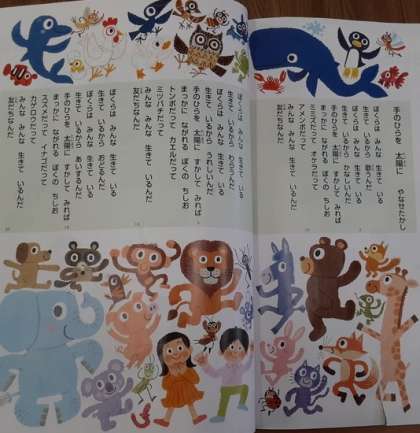 手のひらを 太陽に
やなせたかし
ぼくらは みんな 生きて いる
生きて いるから 歌うんだ
ぼくらは みんな 生きて いる
生きて いるから かなしいんだ
手のひらを 太陽に すかして みれば
まっかに ながれる ぼくの ちしお
ミミズだって オケラだって
アメンボだって
みんな みんな 生きて いるんだ
友だちなんだ
ぼくらは みんな 生きて いる
生きて いるから わらうんだ
ぼくらは みんな 生きて いる
生きて いるから うれしいんだ
手のひらを 太陽に すかして みれば
まっかに ながれる ぼくの ちしお
トンボだって カエルだって
ミツバチだって
みんな みんな 生きて いるんだ
友だちなんだ
ぼくらは みんな 生きて いる
生きて いるから おどるんだ
ぼくらは みんな 生きて いる
生きて いるから あいするんだ
手のひらを 太陽に すかして みれば
まっかに ながれる ぼくの ちしお
スズメだって イナゴだって
カゲロウだって
みんな みんな 生きて いるんだ
友だちなんだ